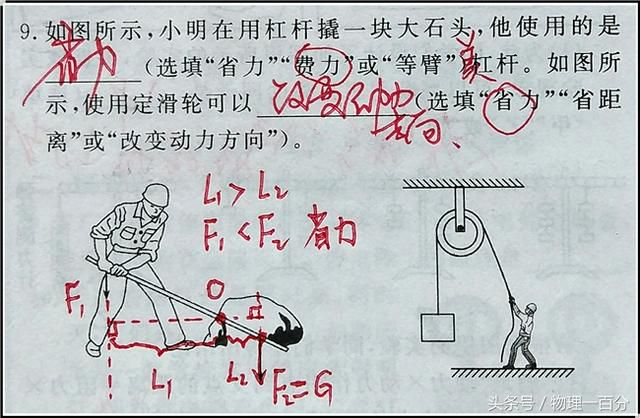 9. 如图所示,小明在用杠杆撬一块大石头,他使用的是
省力(选填“省力”“费力”或“等臂”)杠杆。如图所
示,使用定滑轮可以改变动力方向(选填“省力”“省距
离”或“改变动力方向”)。
L₁>L₂
F₁<F₂ 省力
F₁
O
L₁
L₂
F₂=G
头条号/物理一百分